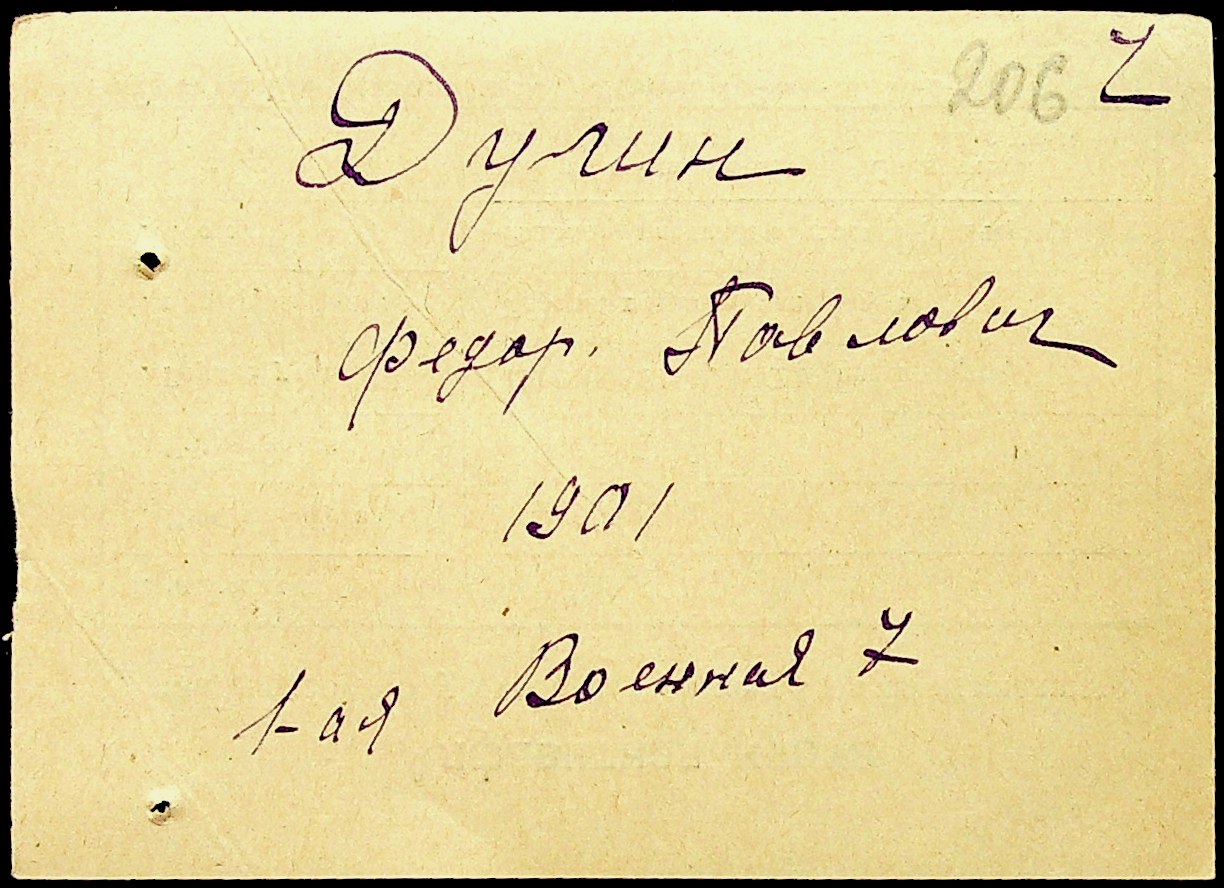 206
Дулин
Федор. Павлович
1901
1-ая Военная 7